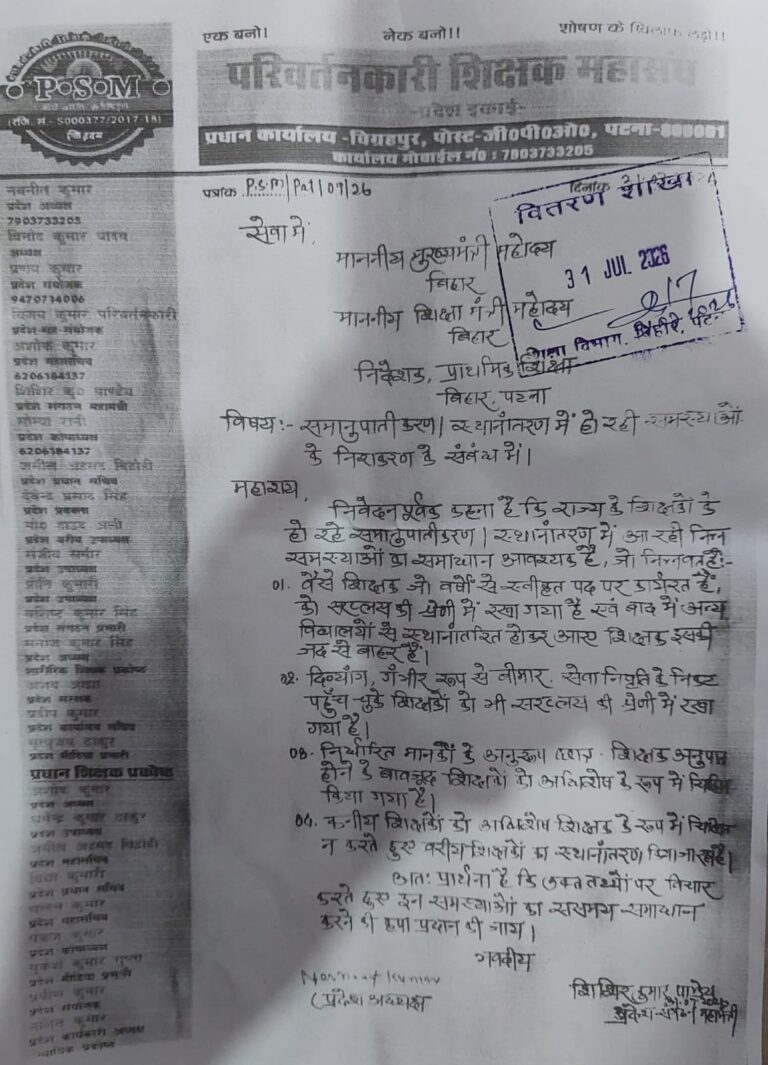 एक बनो! नेक बनो!! शोषण के खिलाफ लड़ो!!
P.S.M
(रजि. सं.- S000377/2017-18)
परिवर्तनकारी शिक्षक महासंघ
-प्रदेश इकाई-
प्रधान कार्यालय -विग्रहपुर, पोस्ट-जी०पी०ओ०, पटना-800001
कार्यालय मोबाईल नं० : 7903733205
पत्रांक P.S.M/Pat/09/26
दिनांक
वितरण शाखा
31 JUL 2026
शिक्षा विभाग, बिहार, पटना
सेवा में,
माननीय मुख्यमंत्री महोदय
बिहार
माननीय शिक्षा मंत्री महोदय
बिहार
निदेशक, प्राथमिक शिक्षा
बिहार, पटना
विषय:- समानुपातीकरण/स्थानांतरण में हो रही समस्याओं
के निराकरण के संबंध में।
महाशय,
निवेदनपूर्वक कहना है कि राज्य के शिक्षकों के
हो रहे समानुपातीकरण/स्थानांतरण में आ रही निम्न
समस्याओं का समाधान आवश्यक है, जो निम्नवत है:-
01. वैसे शिक्षक जो वर्षों से स्वीकृत पद पर कार्यरत हैं,
को सरप्लस की श्रेणी में रखा गया है एवं बाद में अन्य
विद्यालयों से स्थानांतरित होकर आए शिक्षक इसकी
जद से बाहर हैं।
02. दिव्यांग, गंभीर रूप से बीमार, सेवा निवृति के निकट
पहुँच चुके शिक्षकों को भी सरप्लस की श्रेणी में रखा
गया है।
03. निर्धारित मानकों के अनुरूप छात्र-शिक्षक अनुपात
होने के बावजूद शिक्षकों को अधिशेष के रूप में चिन्हित
किया गया है।
04. कनीय शिक्षकों को अधिशेष शिक्षक के रूप में चिन्हित
न करते हुए वरीय शिक्षकों का स्थानांतरण किया जा रहा है।
अतः प्रार्थना है कि उक्त तथ्यों पर विचार
करते हुए इन समस्याओं का ससमय समाधान
करने की कृपा प्रदान की जाय।
भवदीय
Navneet Kumar
(प्रदेश अध्यक्ष)
शिशिर कुमार पाण्डेय
प्रदेश संगठन महामंत्री
नवनीत कुमार
प्रदेश अध्यक्ष
7903733205
विनोद कुमार यादव
अध्यक्ष
प्रणय कुमार
प्रदेश संयोजक
9470714006
विजय कुमार परिवर्तनकारी
प्रदेश सह संयोजक
अशोक कुमार
प्रदेश महासचिव
6206184137
शिशिर कु० पाण्डेय
प्रदेश संगठन महामंत्री
सौम्या रानी
प्रदेश कोषाध्यक्ष
6206184137
प्रदेश प्रधान सचिव
देवेन्द्र प्रसाद सिंह
प्रदेश प्रवक्ता
मो० दाउद अली
प्रदेश वरीय उपाध्यक्ष
संजीव समीर
प्रदेश उपाध्यक्ष
प्रीति कुमारी
प्रदेश उपाध्यक्ष
वशिष्ठ कुमार सिंह
प्रदेश संगठन प्रभारी
मनोज कुमार सिंह
प्रदेश अध्यक्ष
शारीरिक शिक्षक प्रकोष्ठ
प्रदेश संरक्षक
प्रदीप कुमार
प्रदेश कार्यालय सचिव
मृत्युंजय ठाकुर
प्रदेश मीडिया प्रभारी
प्रधान शिक्षक प्रकोष्ठ
अशोक कुमार
प्रदेश अध्यक्ष
धर्मेन्द्र कुमार ठाकुर
प्रदेश उपाध्यक्ष
प्रदेश महासचिव
विद्या कुमारी
प्रदेश प्रधान सचिव
चन्दन कुमार
प्रदेश महासचिव
प्रदेश कोषाध्यक्ष
मुकेश कुमार गुप्ता
प्रदेश मीडिया प्रभारी
प्रवीण कुमार
प्रदेश संयोजक
प्रदेश कार्यकारी अध्यक्ष